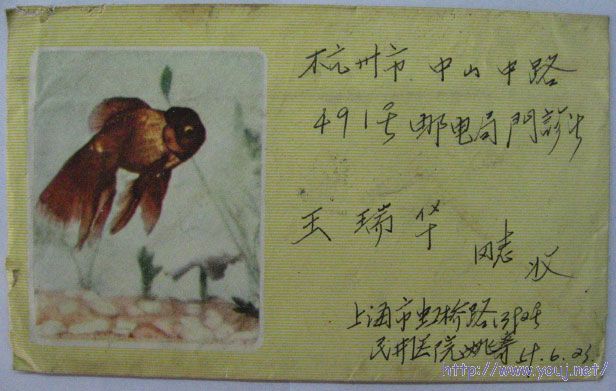 杭州市 中山中路
491号 邮电局門診
王瑞华 同志 收
上海市虹桥路
医院 姚 6.23
http://www.youj.net/